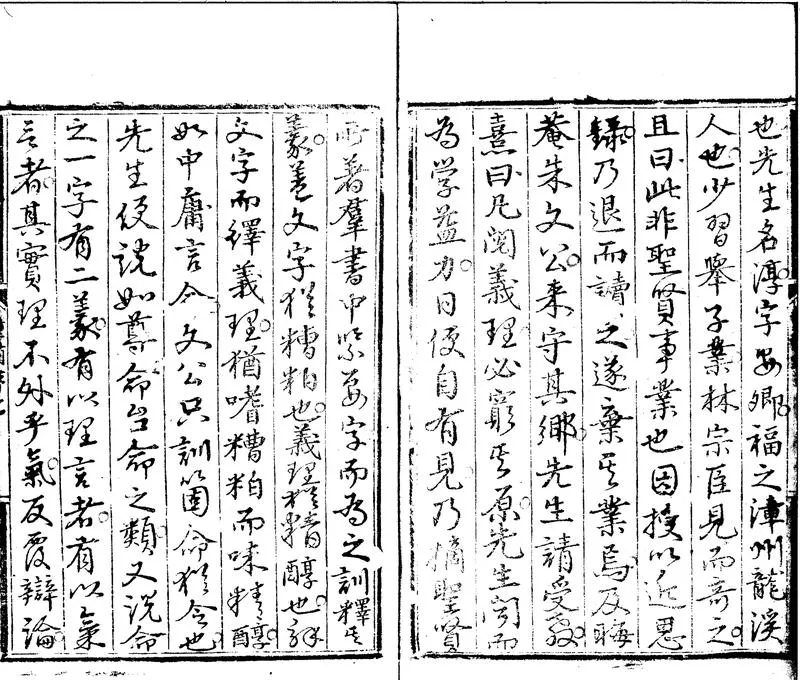 也先生名淳字安卿福之漳州龍溪
人也少習舉子業林宗臣見而奇之
且曰此非聖賢事業也因授以近思
錄乃退而讀之遂棄其業焉及晦
菴朱文公來守其鄉先生請受教
熹曰凡閱義理必窮其原先生聞而
為學益力日便自有見乃摘聖賢
所著羣書中緊要字而為之訓釋其
義蓋文字猶糟粕也義理猶精醇也解
文字而繹義理猶嗜糟粕而味精醇
如中庸言命文公只訓箇命猶令也
先生便說如尊命台命之類又說命
之一字有二義有以理言者有以氣
言者其實理不外乎氣反覆辯論